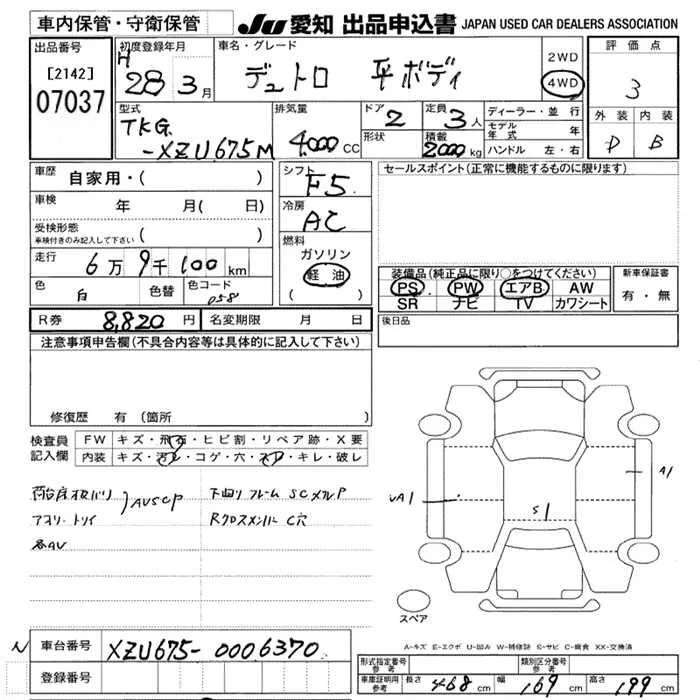 車内保管・守衛保管
JU 愛知 出品申込書 JAPAN USED CAR DEALERS ASSOCIATION
出品番号
[2142]
07037
初度登録年月
H 28 年 3 月
車名・グレード
デュトロ 平ボディ
2WD
4WD
評価点
3
外装 内装
D B
型式
TKG
-XZU675M
排気量
4000 CC
ドア
2
形状
定員
3 人
積載
2000 kg
ディーラー・並行
モデル年式 年
ハンドル 左・右
車歴 自家用・( )
車検 年 月( 日)
受検形態
車検付きのみ記入して下さい ( )
走行 6万 9千 100 km
色 白 色替 色コード 058
シフト
F5
冷房
AC
燃料
ガソリン
軽油
( )
セールスポイント(正常に機能するものに限ります)
装備品(純正品に限り○をつけてください)
PS PW エアB AW
SR ナビ TV カワシート
新車保証書
有・無
R券 8,820 円 名変期限 月 日
後日品
注意事項申告欄(不具合内容等は具体的に記入して下さい)
修復歴 有(箇所 )
検査員記入欄
FW キズ・飛石・ヒビ割・リペア跡・X要
内装 キズ・汚レ・コゲ・穴・スレ・キレ・破レ
AUSCP
アオリ・トリイ
各AU
下回りフレーム SCメクレP
Rクロスメンバー C穴
UA1
S1
A1
スペア
A-キズ E-エクボ U-凹み W-補修跡 S-サビ C-腐食 XX-交換済
N 車台番号 XZU675-0006370
登録番号
形式指定番号 参考
類別区分番号 参考
車庫証明用 参考 長さ 468 cm 幅 169 cm 高さ 199 cm